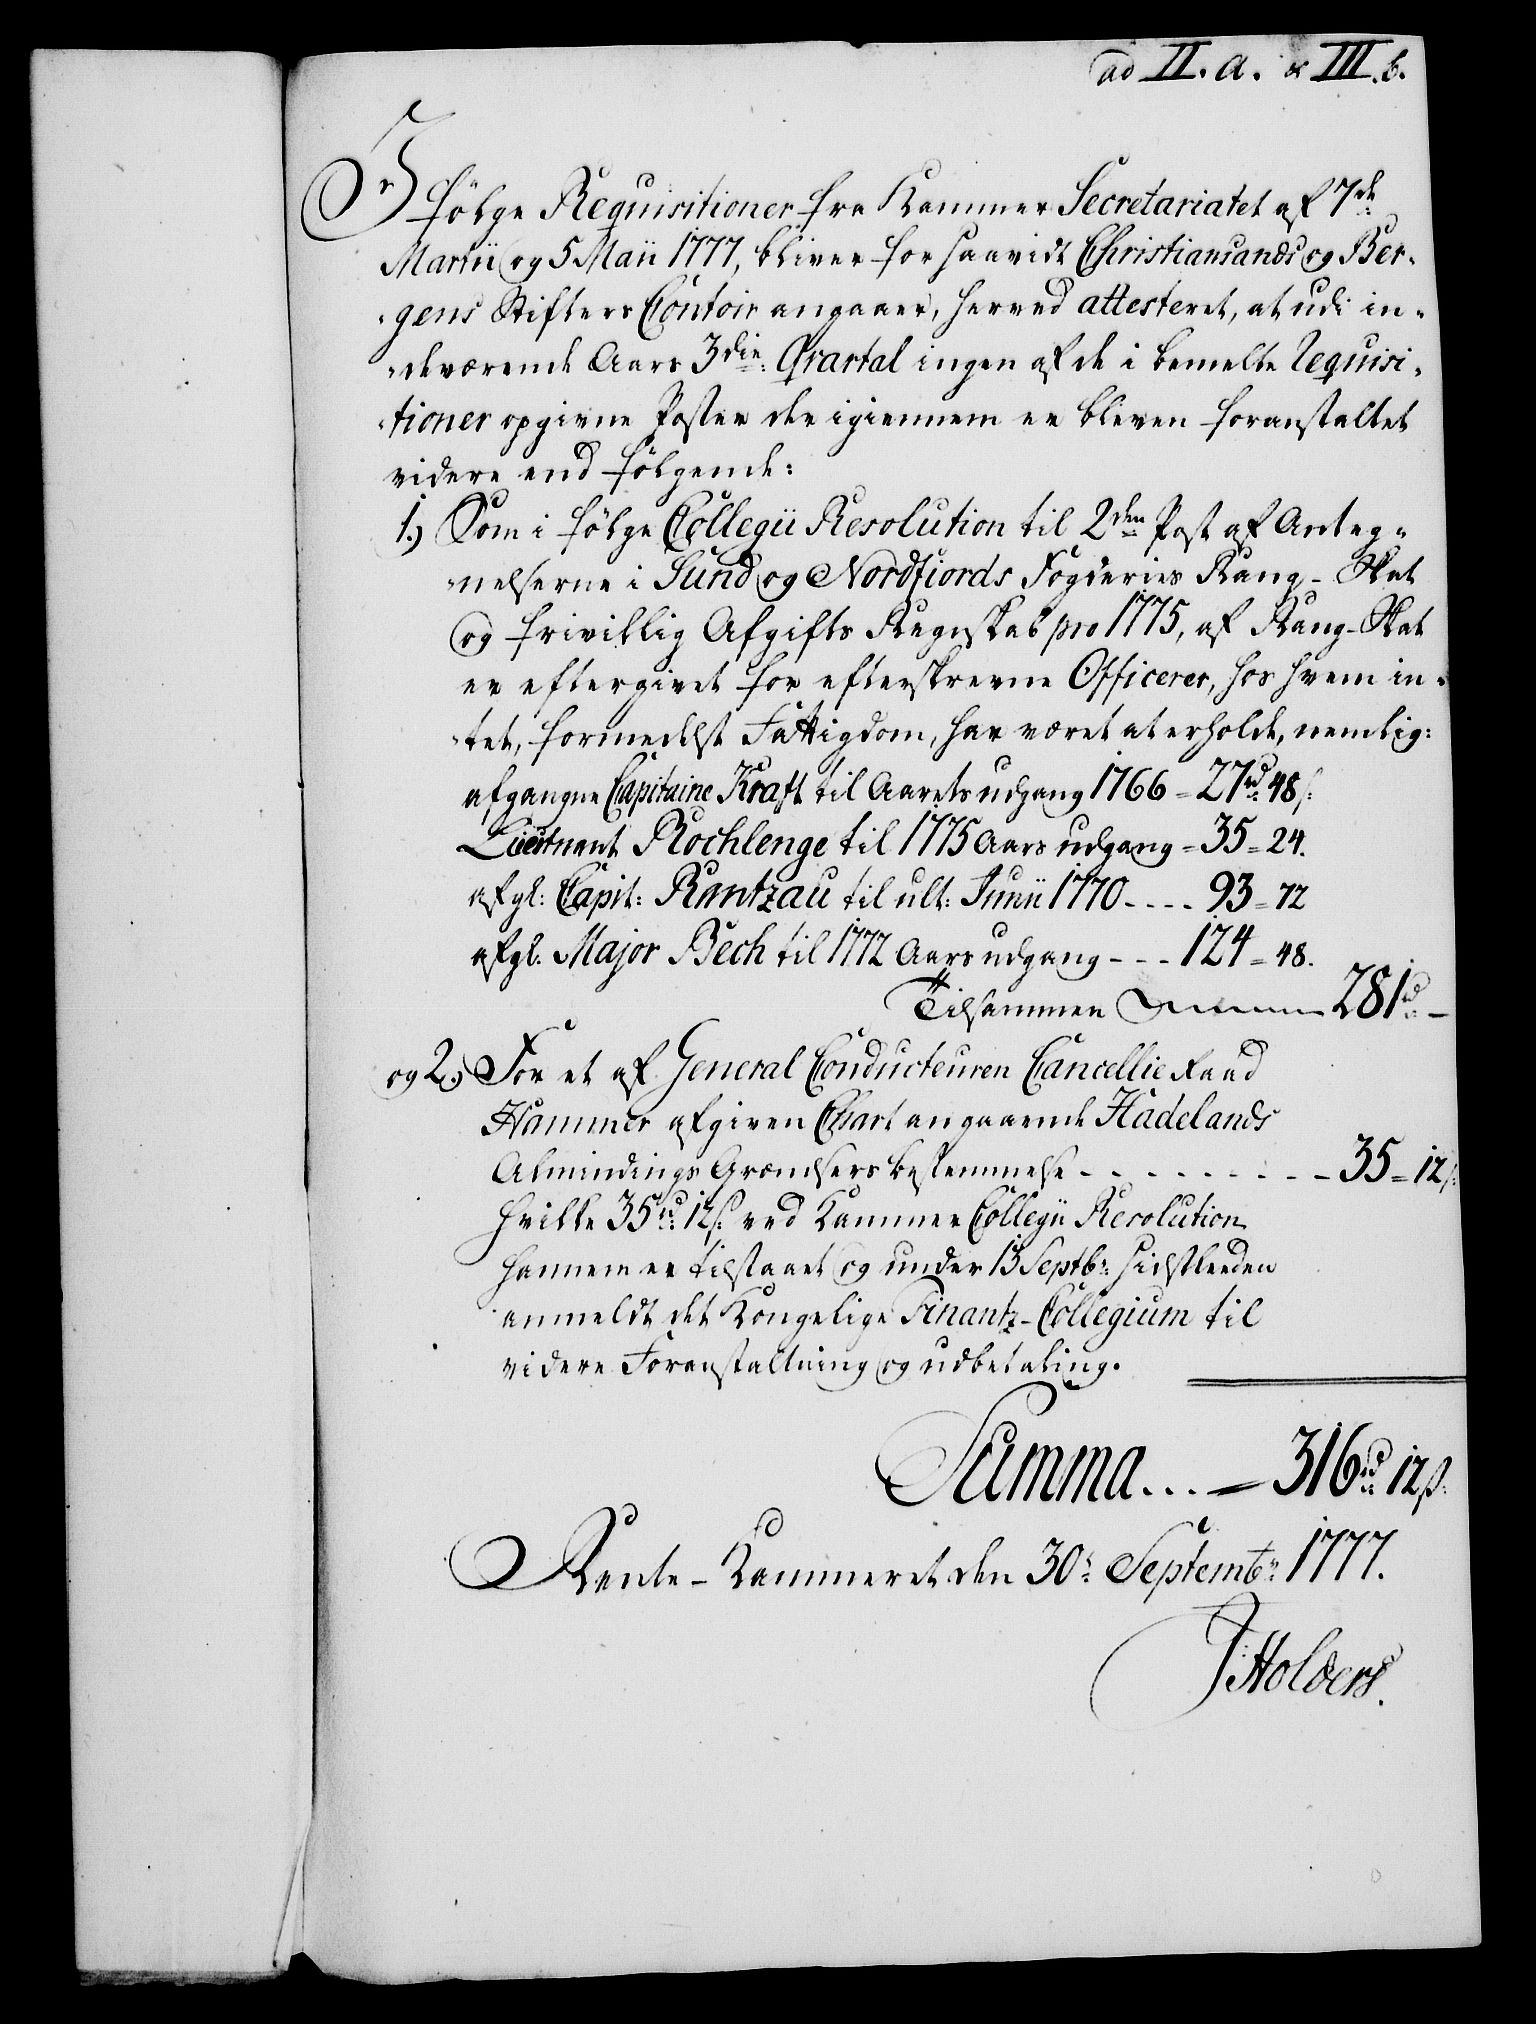 ad II. a. & III. b.
I følge Requisitioner fra Kammer Secretariatet af 7de
Martii og 5 Maii 1777, bliver for saavidt Christiansands og Ber-
gens Stifters Contoir angaaer, herved attesteret, at udi in-
deværende Aars 3die Qvartal ingen af de i bemelte Requisi-
tioner opgivne Poster der igiennem er bleven foranstaltet
videre end følgende:
1.) Som i følge Collegii Resolution til 2den Post af Anteg-
nelserne i Sund og Nordfiords Fogderies Rang-Skat
og frivillig Afgifts Regnskab pro 1775, af Rang-Skat
er eftergivet for efterskrevne Officerer, hos hvem in-
tet, formedelst Fattigdom, har været at erholde, nemlig:
afgangne Capitaine Kraft til Aarets udgang 1766 = 27rd 48s:
Lieutnant Rochlenge til 1775 Aars udgang = 35 = 24.
afgl: Capit: Rantzau til ult: Junii 1770 - - - - 93 = 72
afgl. Major Bech til 1772 Aars udgang - - - 124 = 48.
Tilsammen 281rd -
og 2.) For et af General Conducteuren Cancellie Raad
Hammer afgiven Chart angaaende Hadelands
Almindings Grændsers bestemmelse - - - - - - - - - 35 = 12s:
hvilke 35rd 12s: ved Kammer Collegii Resolution
hannem er tilstaaet og under 13 Septbr: sidstleeden
anmeldt det Kongelige Finantz-Collegium til
videre Foranstaltning og udbetaling.
Summa . . . = 316rd 12s:
Rente-Kammeret den 30te Septembr: 1777.
J Holbers.